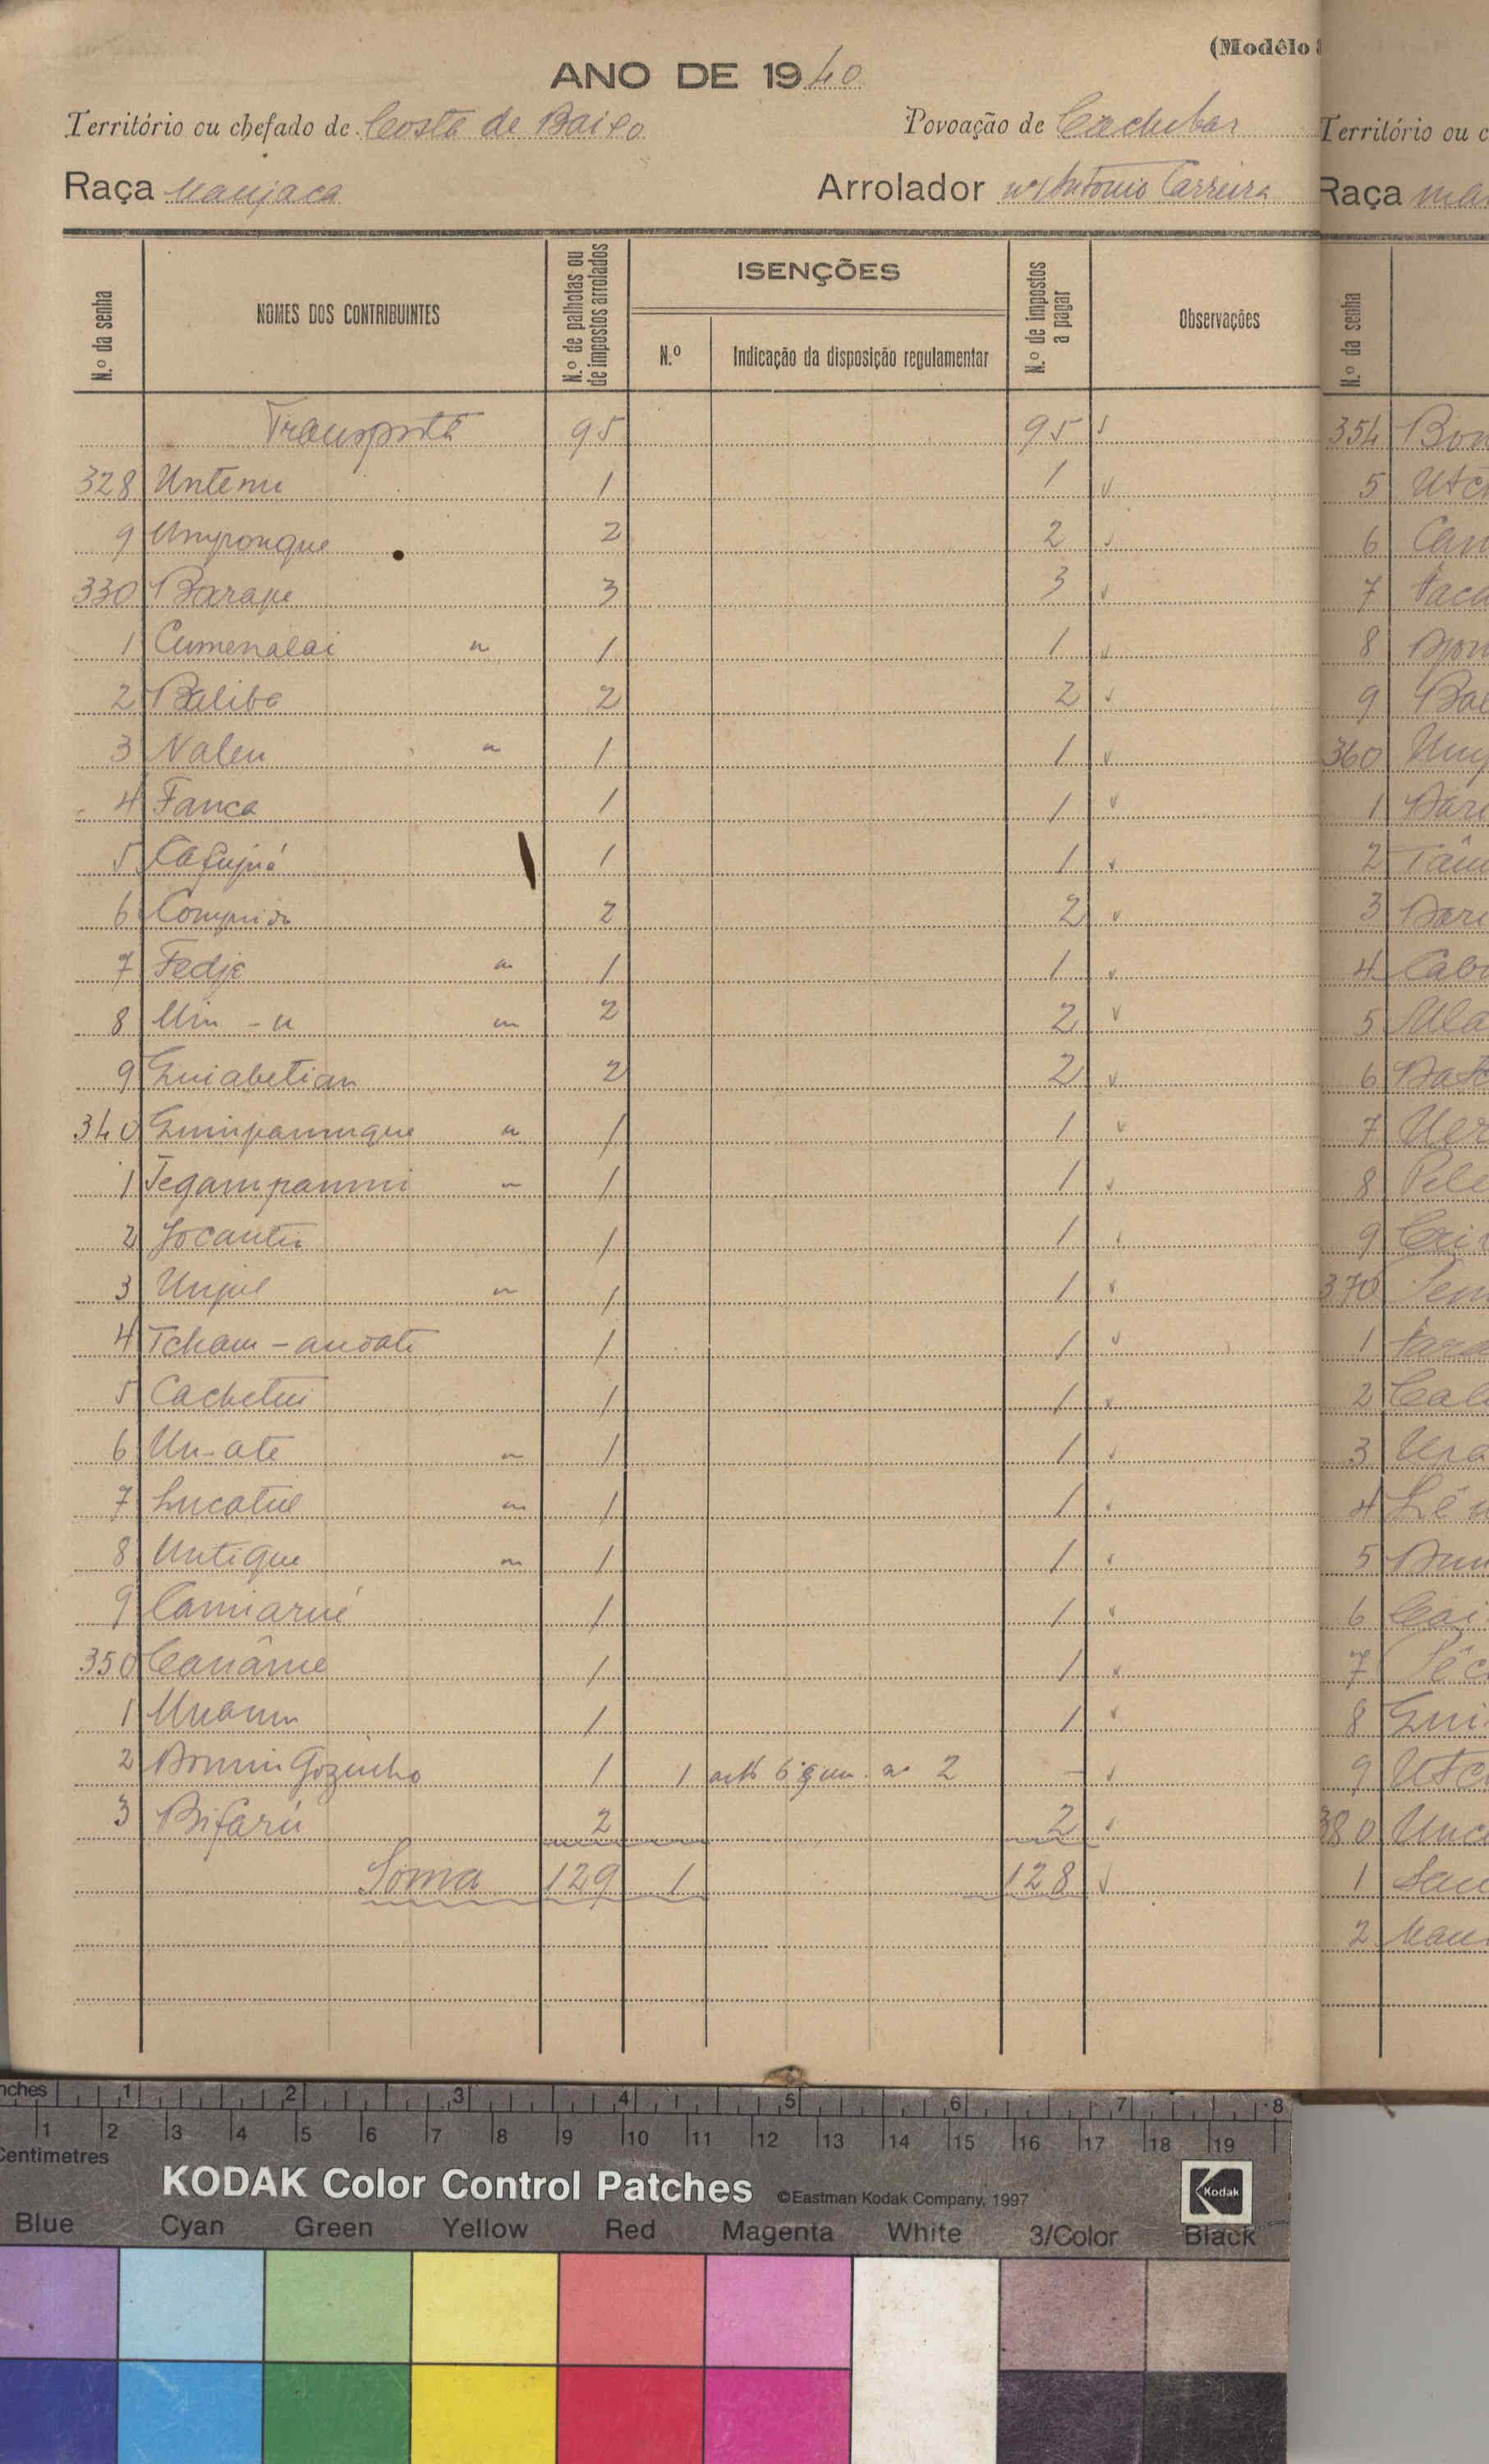 (Modêlo
ANO DE 1940
Território ou chefado de Costa de Baixo Povoação de Cachobar
Raça Manjaca Arrolador António Carreira
N.º da senha NOMES DOS CONTRIBUINTES N.º de palhotas ou de impostos arrolados ISENÇÕES N.º Indicação da disposição regulamentar N.º de impostos a pagar Observações
Transporte 95 95
328 Untemi 1 1
9 Umpongue 2 2
330 Barape 3 3
1 Cumenalai " 1 1
2 Baliba 2 2
3 Naleu " 1 1
4 Fanca 1 1
5 Cafujué 1 1
6 Comprido 2 2
7 Fedje " 1 1
8 Um - u " 2 2
9 Guiabetian 2 2
340 Guimpamugue " 1 1
1 Jegampanmi " 1 1
2 Jocantu 1 1
3 Unjul " 1 1
4 Tcham - andate 1 1
5 Cachetui 1 1
6 Un-ate " 1 1
7 Lucatul " 1 1
8 Untique " 1 1
9 Camiarué 1 1
350 Canâme 1 1
1 Unanm 1 1
2 Domingozinho 1 1 artº 6 § un. nº 2 -
3 Bifarú 2 2
Soma 129 1 128
Território ou c
Raça ma
N.º da senha
354 Bon
5 Utc
6 Can
7
8
9 Bal
360
1
2
3
4 Cab
5
6
7
8
9
370
1
2 Cal
3
4
5
6
7
8 Gui
9 Utc
380
1
2
inches 1 2 3 4 5 6 7 8
Centimetres 1 2 3 4 5 6 7 8 9 10 11 12 13 14 15 16 17 18 19
KODAK Color Control Patches ©Eastman Kodak Company, 1997 Kodak
Blue Cyan Green Yellow Red Magenta White 3/Color Black